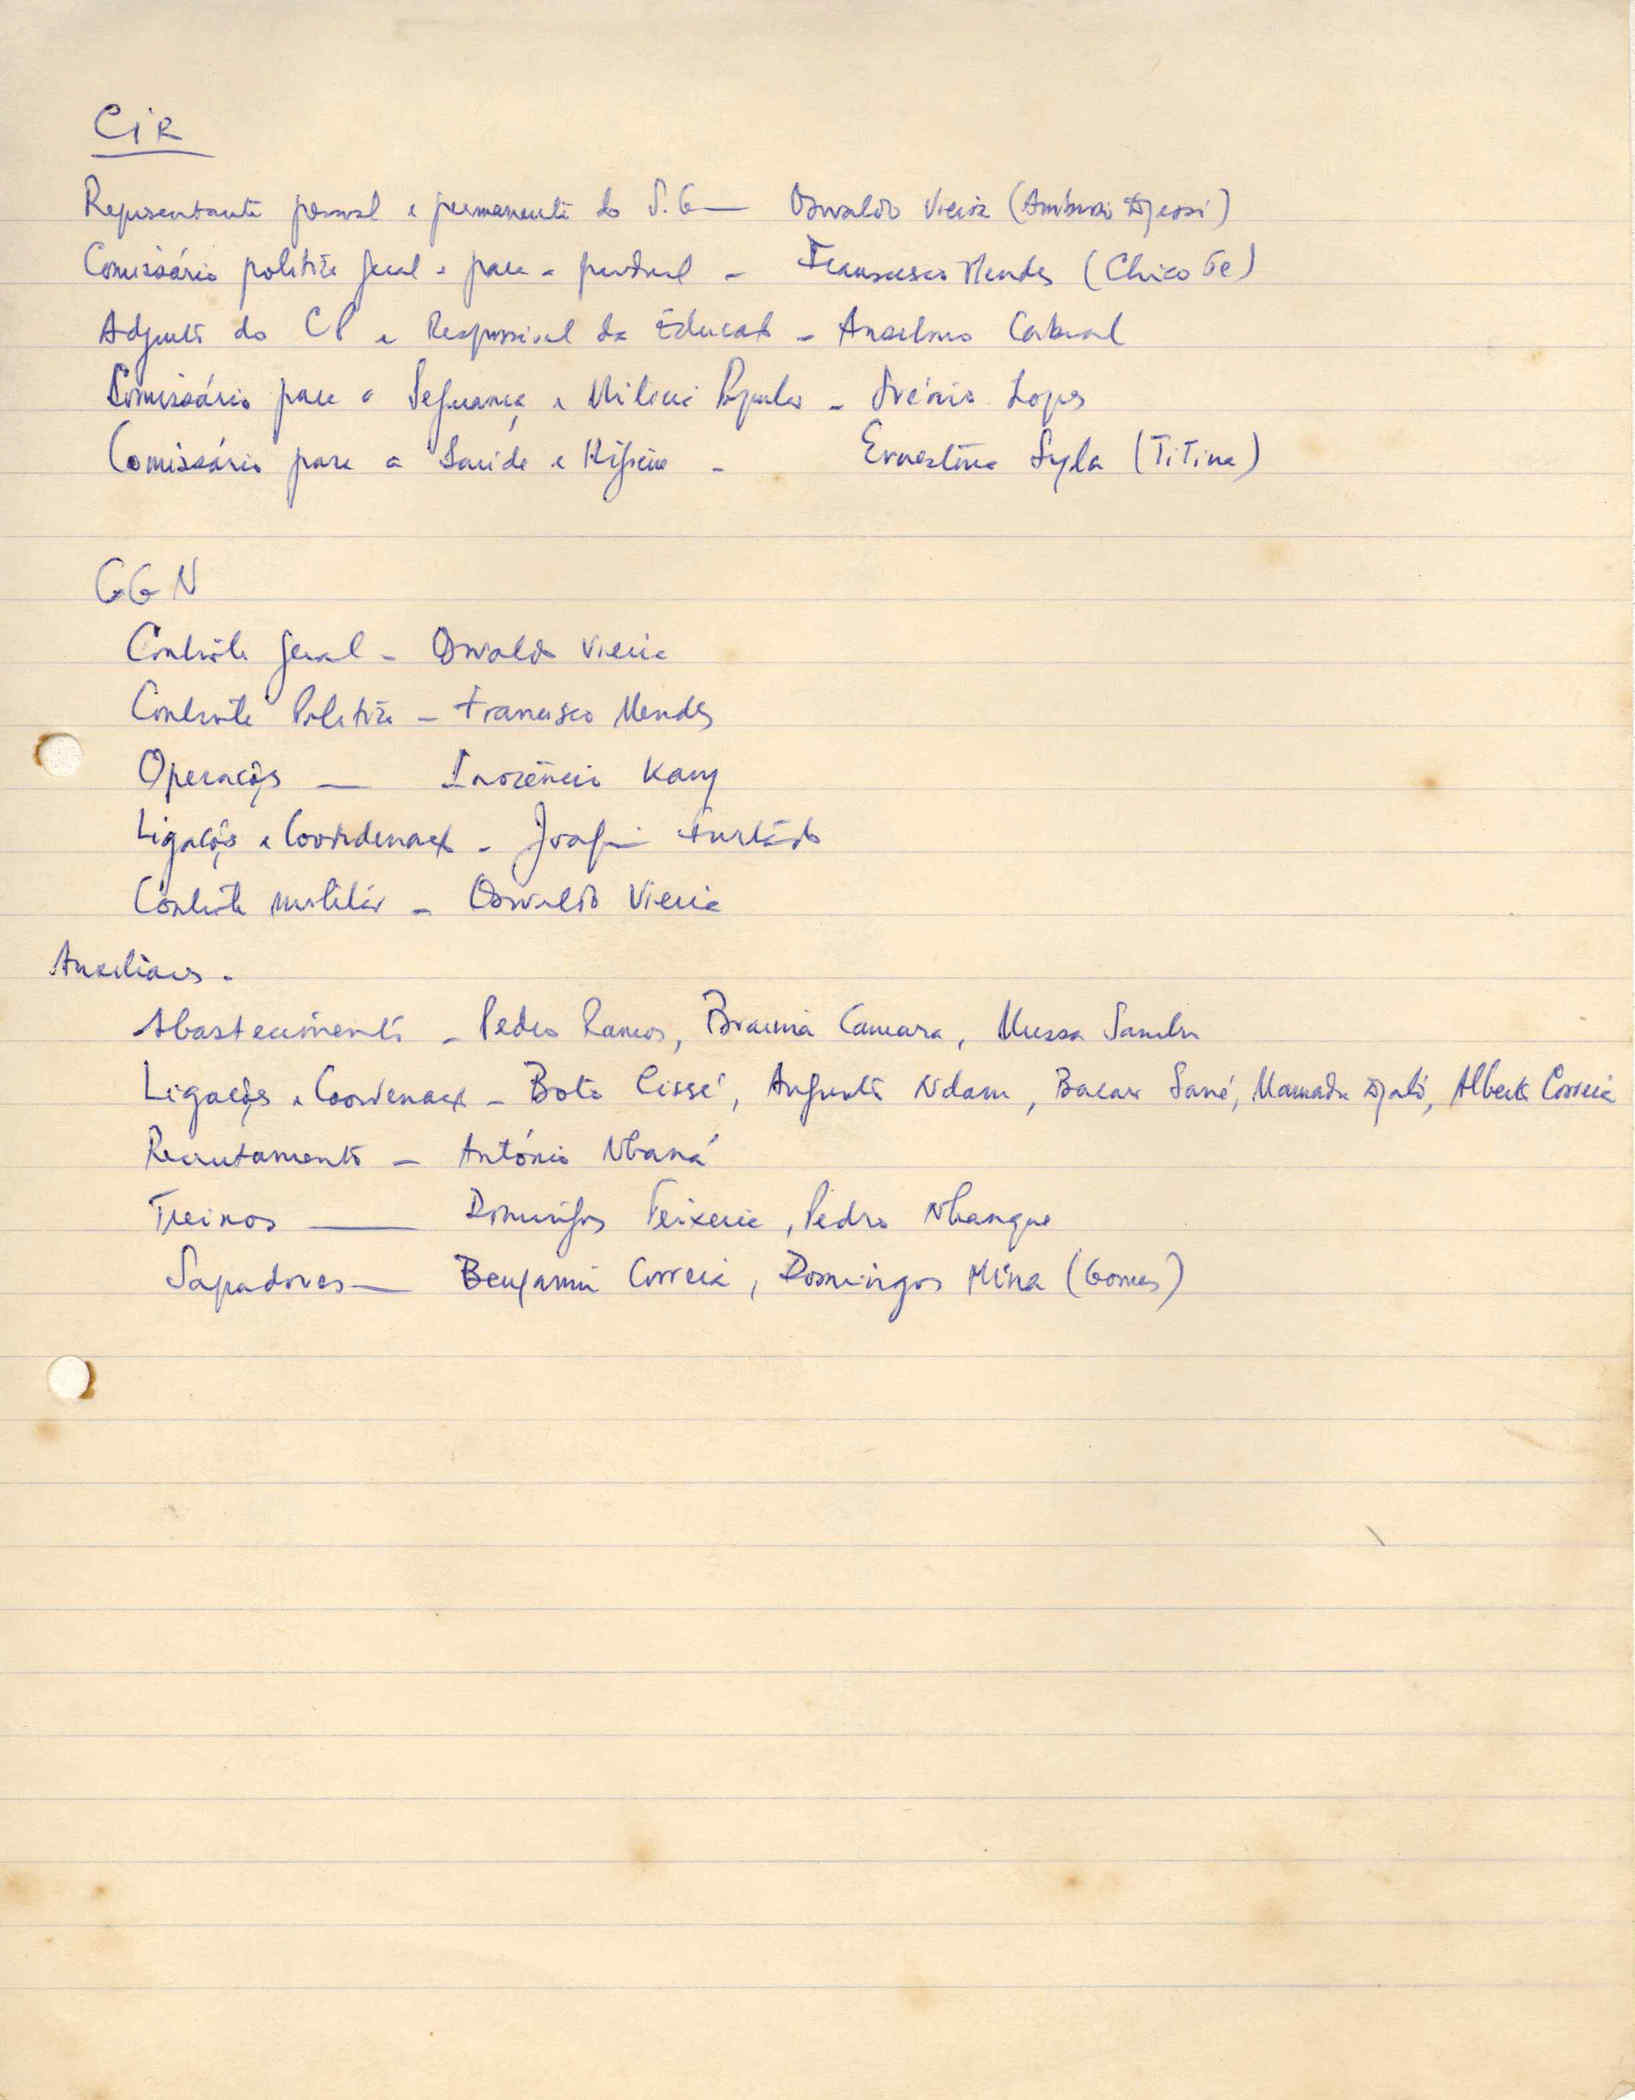 CIR
Representante pessoal e permanente do S.G — Osvaldo Vieira (Ambrósio Djassi)
Comissário político geral e para a - Francisco Mendes (Chico Té)
Adjunto do CP e Responsável da Educação - Anselmo Cabral
Comissário para a Segurança e Milícia Popular - Irénio Lopes
Comissário para a Saúde e Higiene - Ernestina Sylla (Titina)
GGN
Contrôle geral - Osvaldo Vieira
Contrôle Político - Francisco Mendes
Operações — Inocêncio Kany
Ligações e Coordenação - Joaquim Furtado
Contrôle militar - Osvaldo Vieira
Auxiliares -
Abastecimento - Pedro Ramos, Braima Camara, Mussa Sambu
Ligações e Coordenação - Boto Cissé, Augusto Ndam, Bacar Sané, Mamadu Djaló, Alberto Correia
Recrutamento - António Nbaná
Treinos — Domingos Teixeira, Pedro Nhangue
Sapadores — Benjamim Correia, Domingos Mina (Gomes)